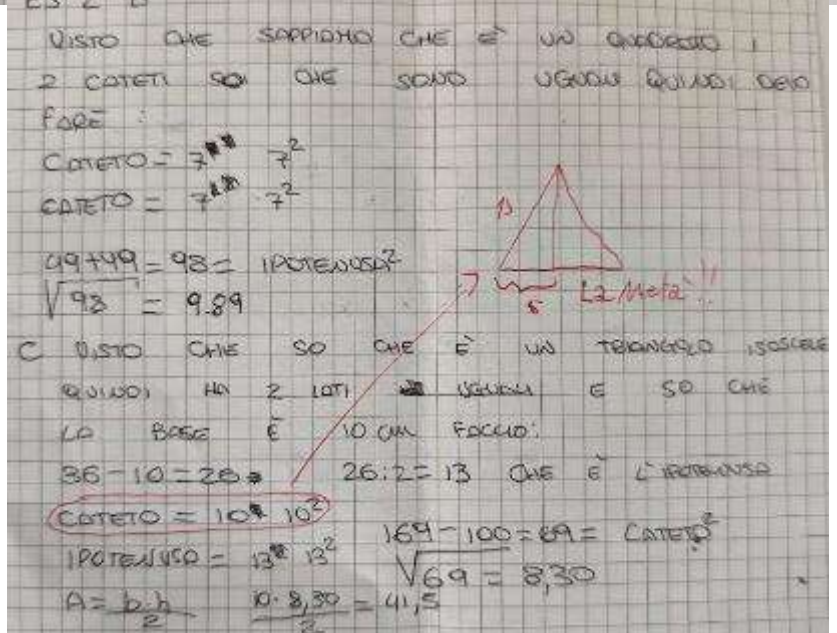 ES 2 B
VISTO CHE SAPPIAMO CHE È UN QUADRATO I
2 CATETI SO CHE SONO UGUALI QUINDI DEVO
FARE :
CATETO = 7 7²
CATETO = 7 7²
49+49=98= IPOTENUSA²
√98 = 9.89
13
5 La Metà!!
C VISTO CHE SO CHE È UN TRIANGOLO ISOSCELE
QUINDI HA 2 LATI UGUALI E SO CHE
LA BASE È 10 CM FACCIO:
36-10=26 26:2=13 CHE È L'IPOTENUSA
CATETO = 10 10²
IPOTENUSA = 13 13²
169-100=69= CATETO²
√69 = 8,30
A= b·h/2 10·8,30/2 = 41,5